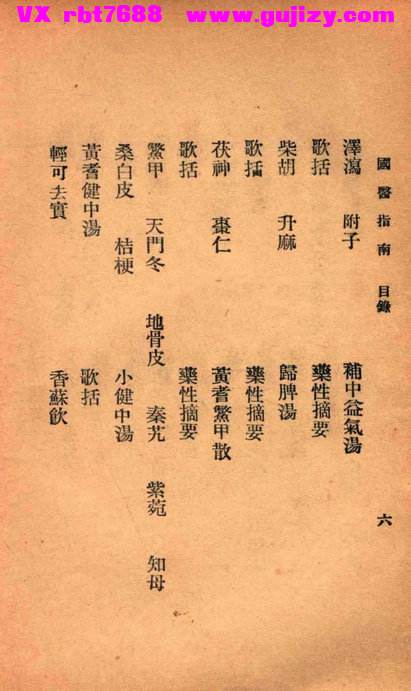 VX rbt7688 www.gujizy.com
國醫指南 目錄 六
澤瀉 附子 補中益氣湯
歌括 藥性摘要
柴胡 升麻 歸脾湯
歌括 藥性摘要
茯神 棗仁 黃耆鱉甲散
歌括 藥性摘要
鱉甲 天門冬 地骨皮 秦艽 紫菀 知母
桑白皮 桔梗 小健中湯
黃耆健中湯 歌括
輕可去實 香蘇飲